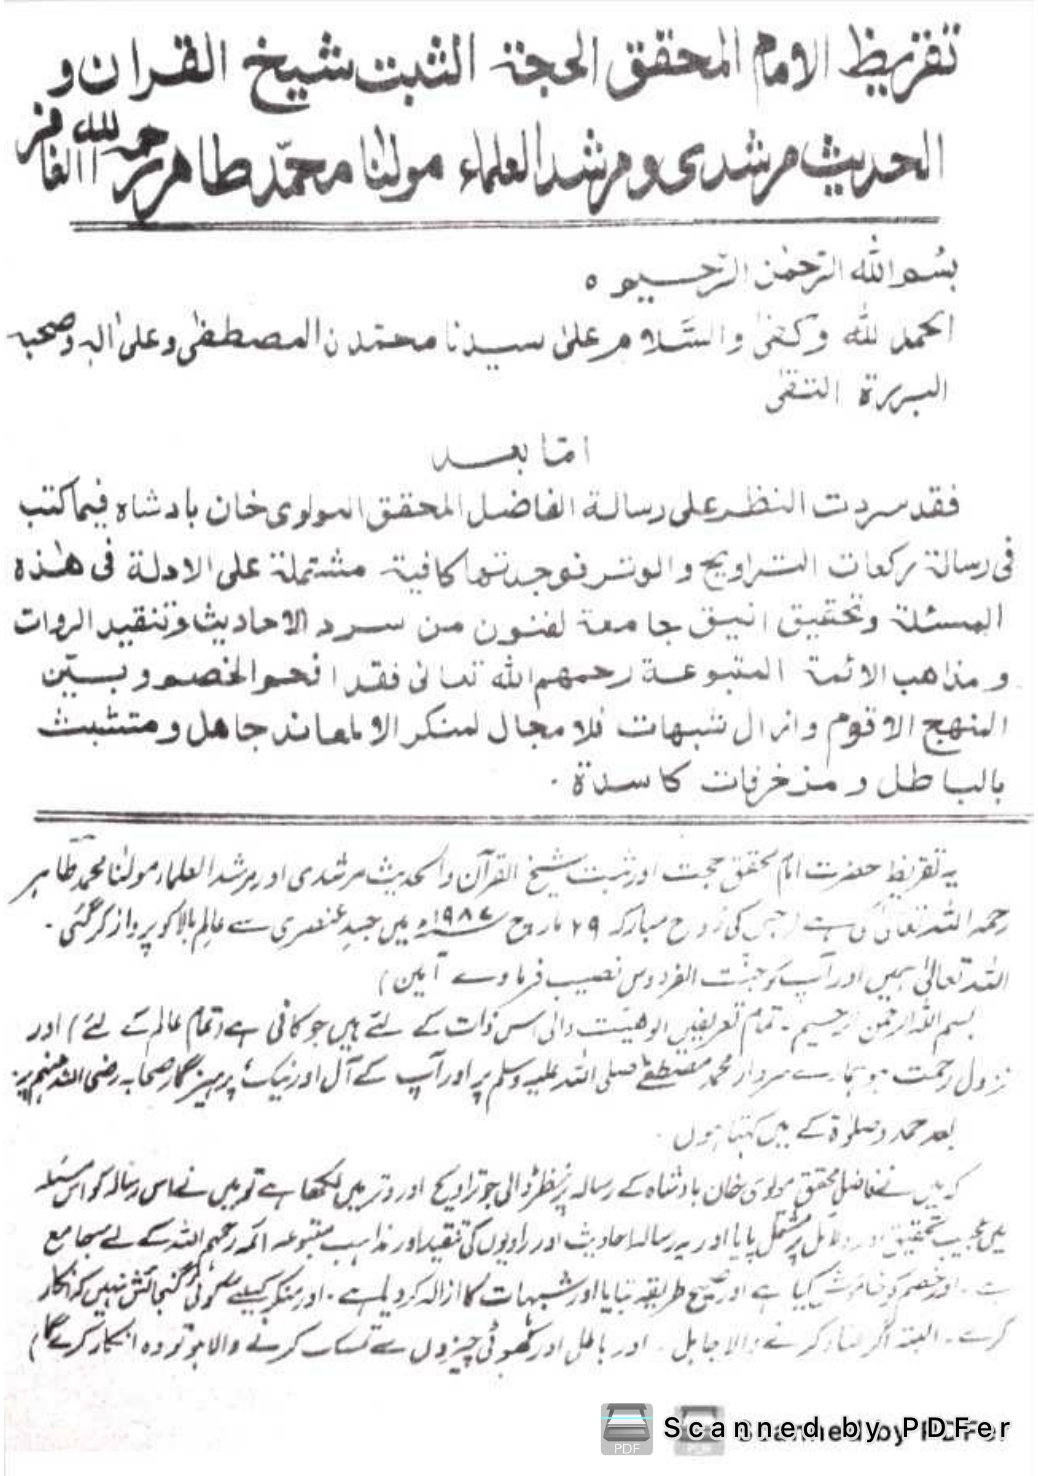 تقریظ الامام المحقق الحجة الثبت شیخ القران و
الحدیث مرشدی و مرشد العلماء مولٰنا محمّد طاهر رحمه الله الغافر
بسم الله الرّحمٰن الرّحیم ٥
الحمد لله وکفٰی والسَّلام علیٰ سیدنا محمّدن المصطفٰی وعلیٰ اٰلہٖ وصحبہ
البررة التقٰی
امّا بعد
فقد سردت النظر علی رسالة الفاضل المحقق المولوی خان بادشاہ فیما کتب
فی رسالة رکعات التراویح والوتر فوجدتها کافیة مشتملة علی الادلة فی هٰذه
المسئلة وتحقیق انیق جامعة لفنون من سرد الاحادیث وتنقید الروات
ومذاهب الائمة المتبوعة رحمهم الله تعالیٰ فقد افحم الخصم و بیّن
المنهج الاقوم وازال شبهات فلا مجال لمنکر الا لمعاند جاهل و متشبث
بالباطل و مزخرفات کاسدة ۔
یہ تقریظ حضرت امام محقق حجت اور ثبت شیخ القرآن والحدیث مرشدی اور مرشد العلماء مولٰنا محمد طاہر
رحمہ اللہ تعالیٰ کی ہے (جس کی روح مبارکہ ۲۹ مارچ ۱۹۸۷ء میں جسدِ عنصری سے عالمِ بالا کو پرواز کر گئی ۔
اللہ تعالیٰ ہمیں اور آپ کو جنّت الفردوس نصیب فرماوے آمین)
بسم اللہ الرحمن الرحیم ۔ تمام تعریفیں الوھیّت والی اس ذات کے لئے ہیں جو کافی ہے (تمام عالم کے لئے) اور
نزول رحمت ہو ہمارے سردار محمد مصطفےٰ صلی اللہ علیہ وسلم پر اور آپ کے آل اور نیک، پرہیزگار صحابہ رضی اللہ عنہم پر
بعد حمد و صلوٰة کے میں کہتا ہوں ۔
کہ میں نے فاضل محقق مولوی خان بادشاہ کے رسالہ پر نظر ڈالی جو تراویح اور وتر میں لکھا ہے تو میں نے اس رسالہ کو اس مسئلہ
عجیب تحقیق اور دلائل پر مشتمل پایا اور یہ رسالہ احادیث اور راویوں کی تنقید اور مذاہب متبوعہ ائمہ رحمہم اللہ کے لئے جامع
ہے ۔ اور خصم کو خاموش کیا ہے اور صحیح طریقہ بتایا اور شبہات کا ازالہ کر دیا ہے ۔ اور منکر کیلئے کوئی گنجائش نہیں کہ انکار
کرے ۔ البتہ اگر عناد کرنے والا جاہل ۔ اور باطل اور کھوٹی چیزوں سے تمسک کرنے والا ہو تو وہ انکار کرے گا)
Scanned by PDFer
Scanned by PDFer